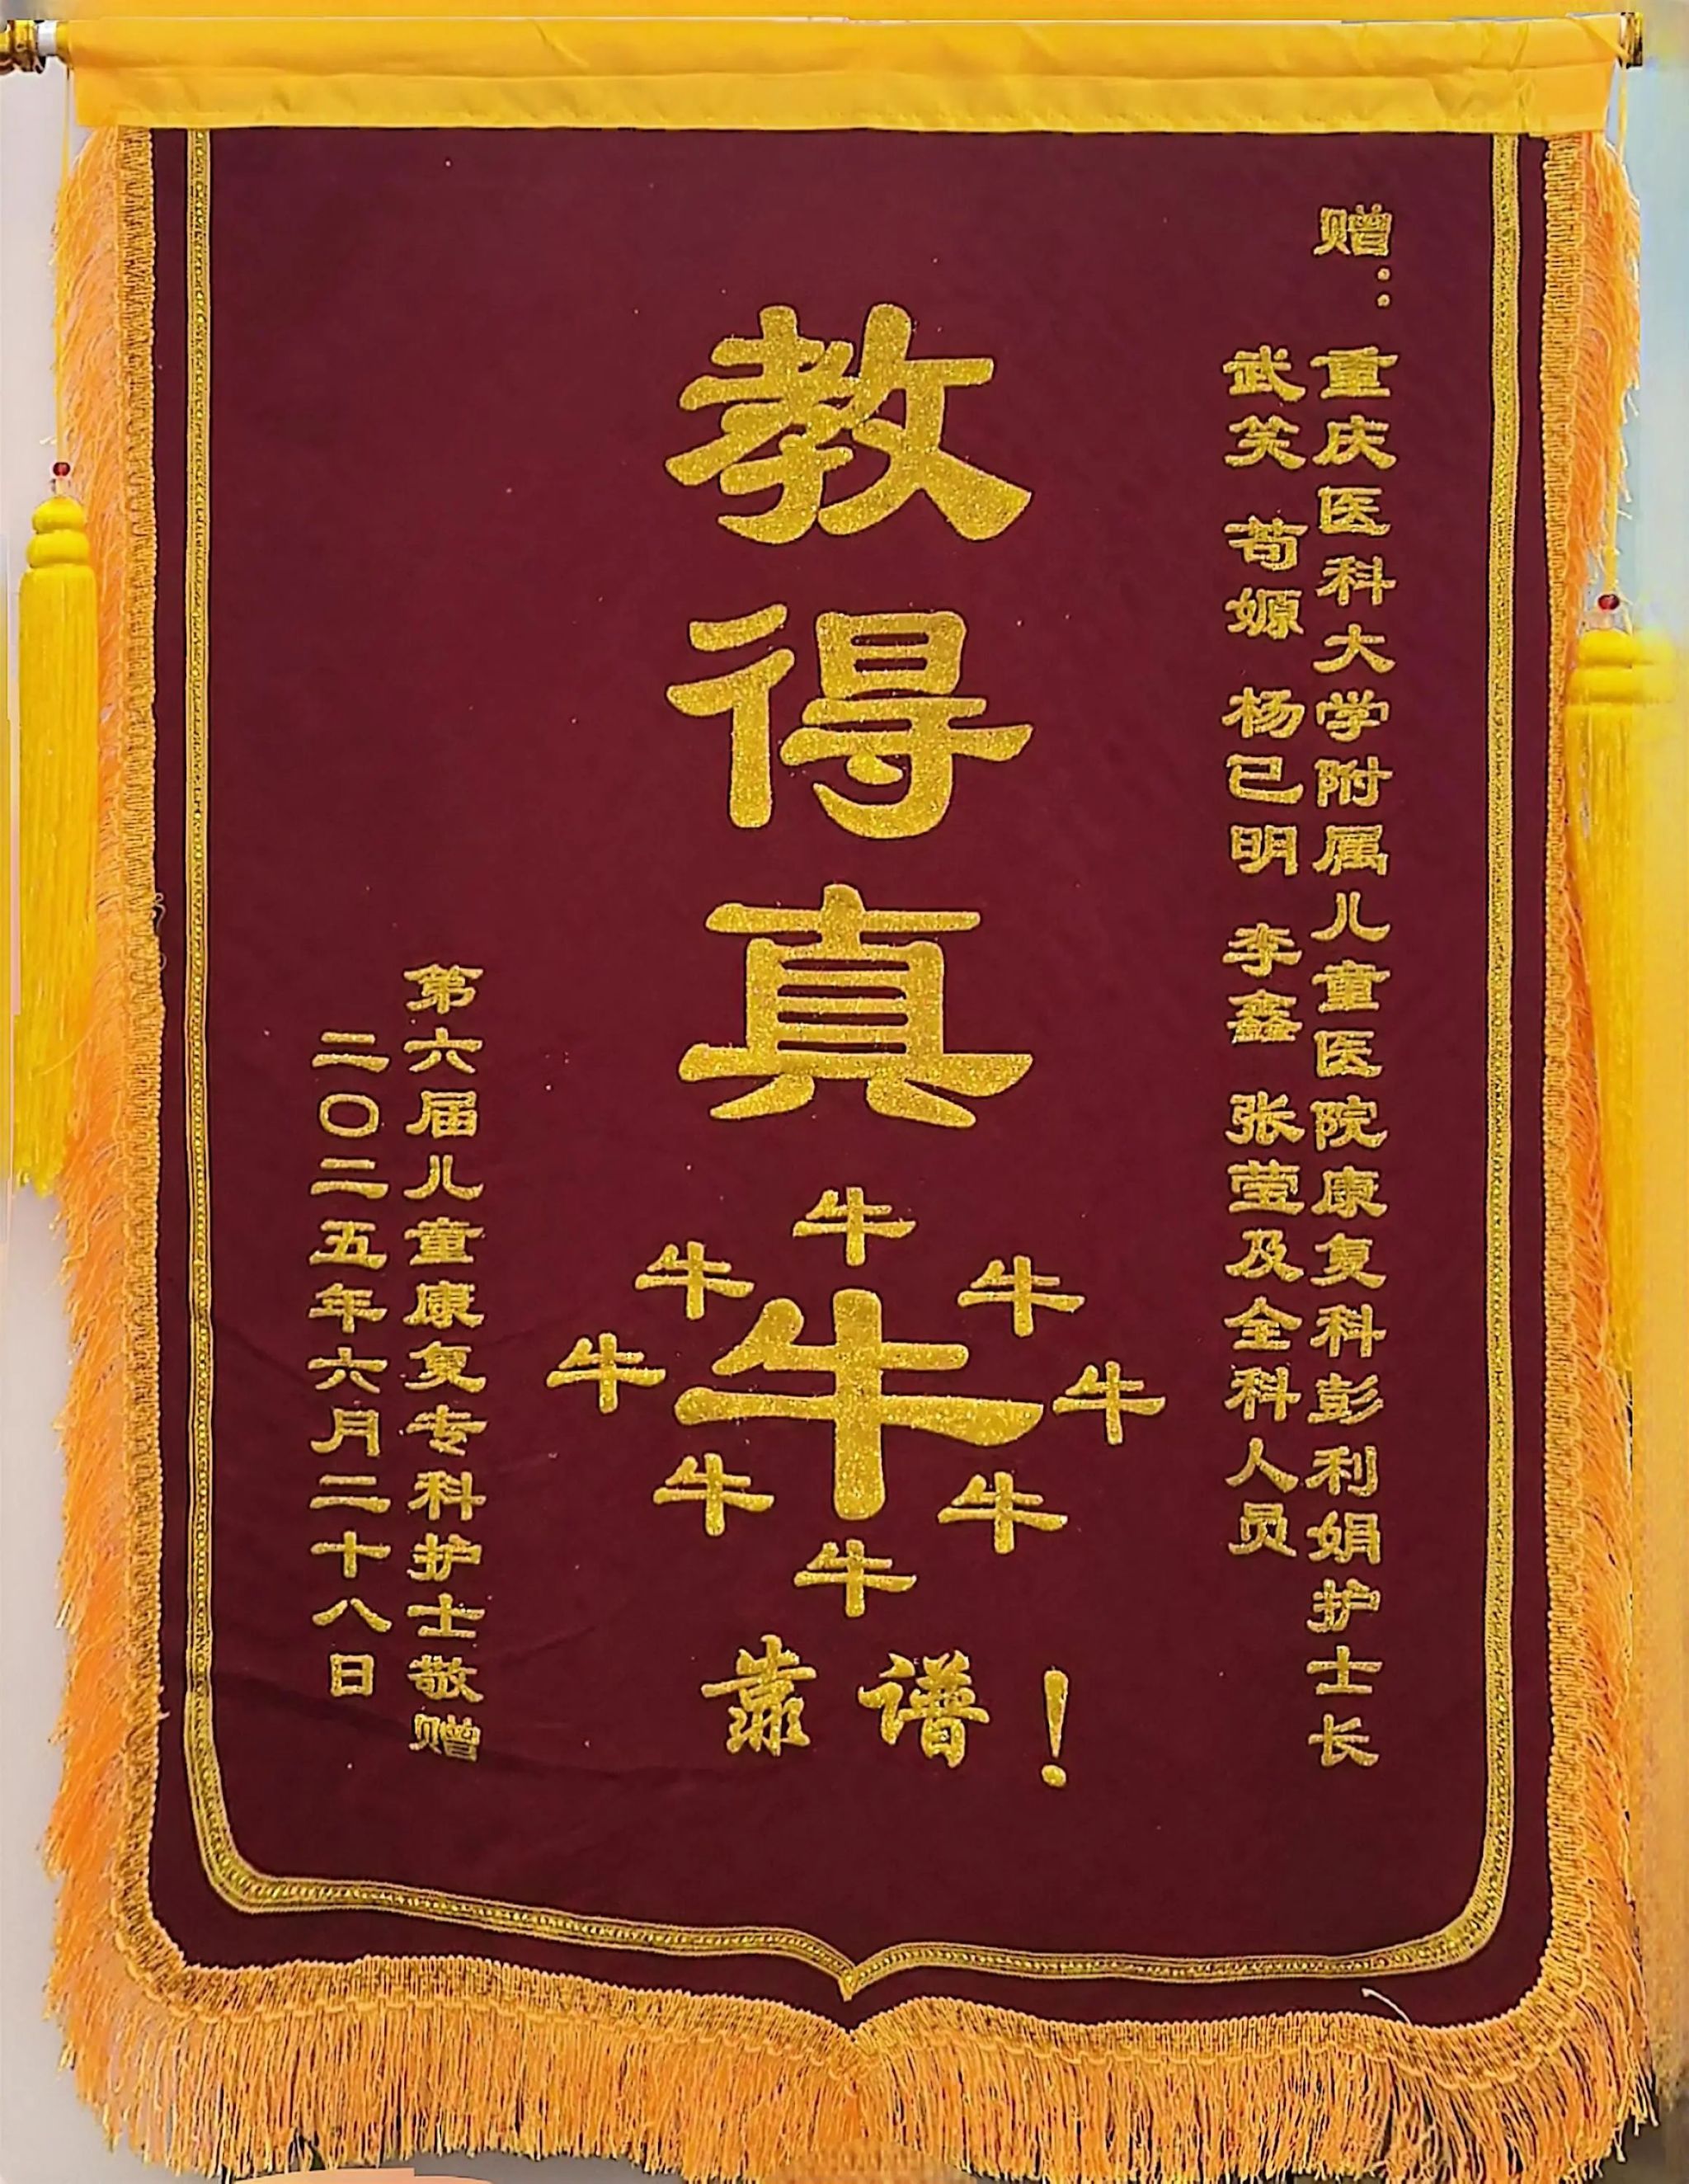 赠：重庆医科大学附属儿童医院康复科彭利娟护士长
武笑 苟嫄 杨已明 李鑫 张莹及全科人员
教得真牛
牛
牛
牛
牛
牛
牛
牛
牛
靠谱！
第六届儿童康复专科护士敬赠
二〇二五年六月二十八日